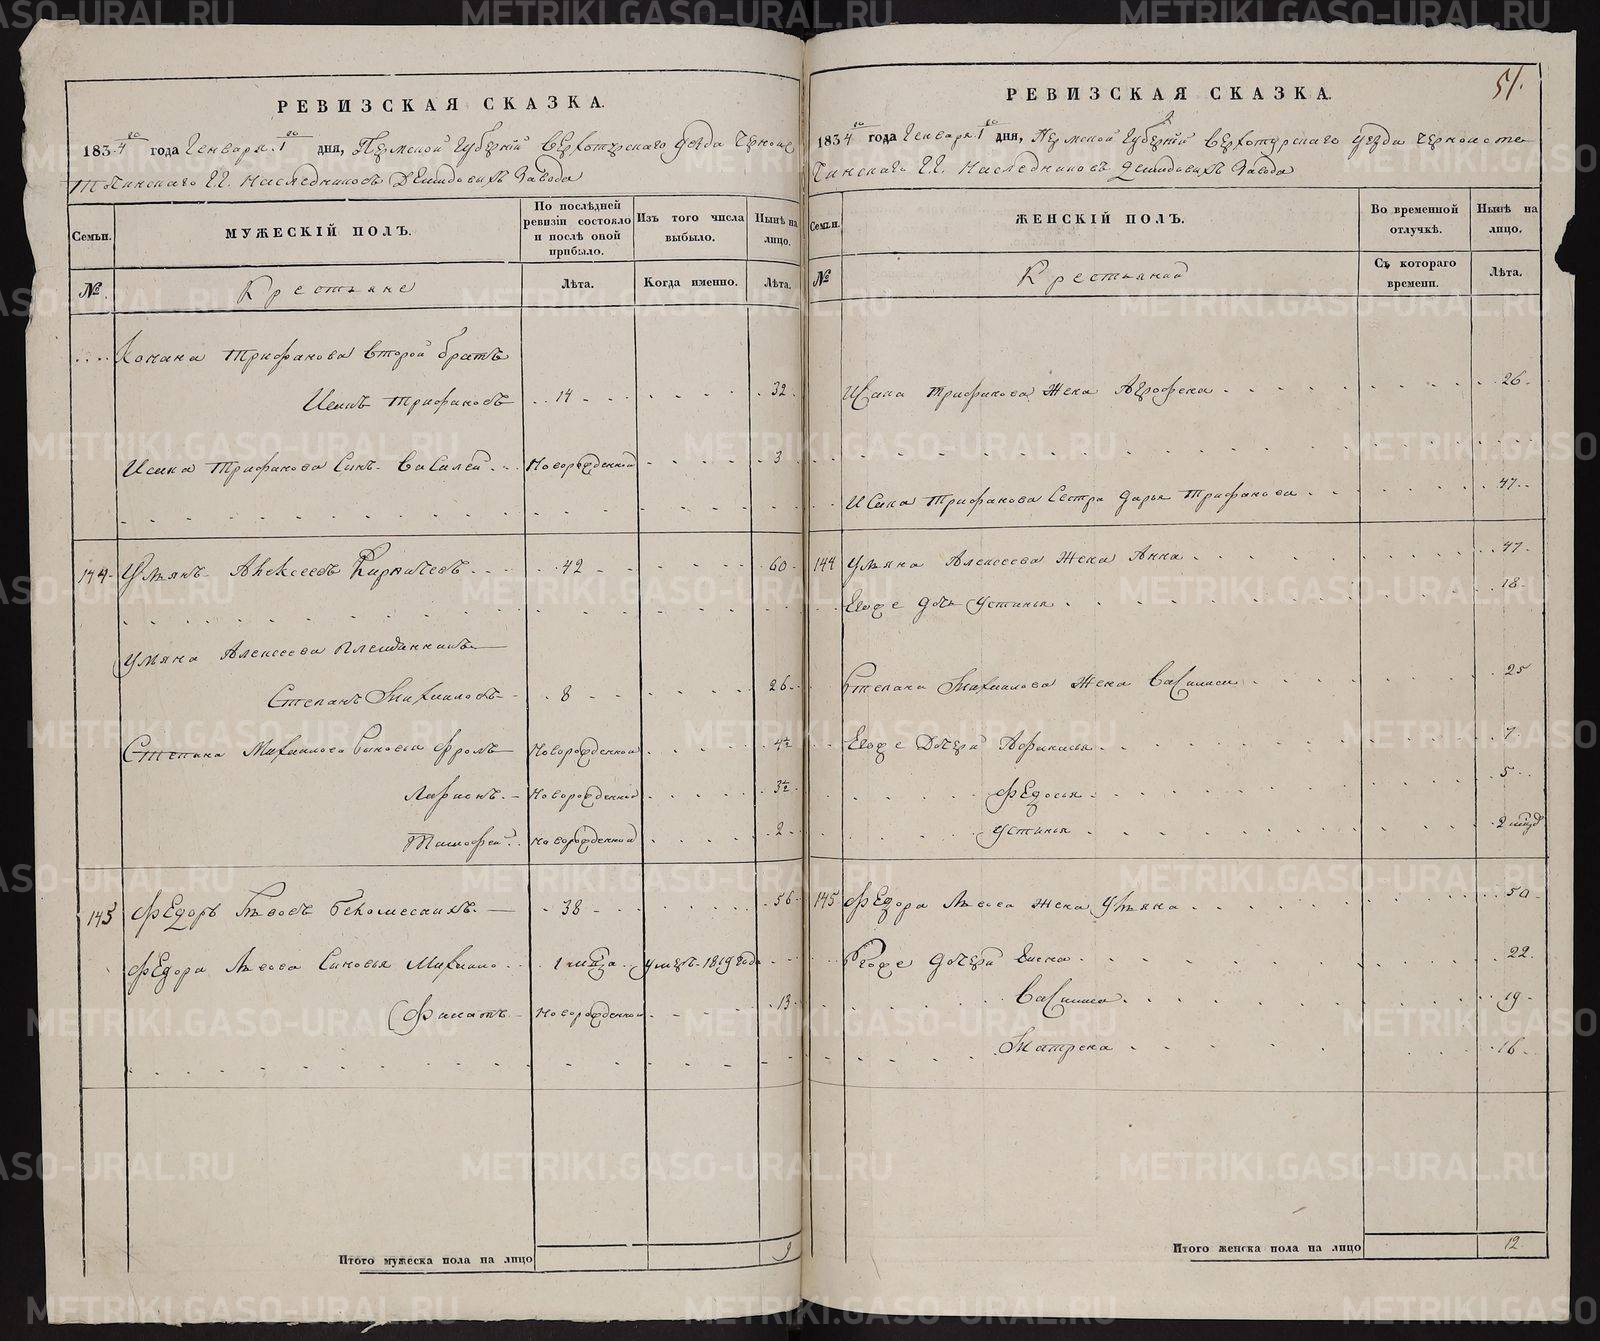 METRIKI.GASO-URAL.RU
51.
РЕВИЗСКАЯ СКАЗКА.
1834го года Генваря 1го дня, Пермской Губернїй Верхотурскаго уезда Черноис
точинскаго Г.Г. Наследниковъ Демидовыхъ Завода
Семьи.
МУЖЕСКІЙ ПОЛЪ.
По послѣдней ревизіи состояло и послѣ оной прибыло.
Изъ того числа выбыло.
Нынѣ на лицо.
№.
Крестьяне
Лѣта.
Когда именно.
Лѣта.
Трифанова второй братъ
Трифановъ 14 32
Трифанова сынъ Василей Новорожденной 3
144 Ульянъ Алексеевъ 42 60
Ульяна Алексеева Племянникъ
Степанъ Михаиловъ 8 26
Степана Михаилова Сыновья Фролъ Новорожденной 4½
Ларионъ Новорожденной 3½
Тимофей Новорожденной 2
145 Федоръ Львовъ 38 56
Федора Львова Сыновья Михаило 1 умеръ 1819 года
Филатъ Новорожденной 13
Итого мужеска пола на лицо 9
РЕВИЗСКАЯ СКАЗКА.
1834го года Генваря 1го дня, Пермской Губернїй Верхотурскаго уезда Черноисто
чинскаго Г.Г. Наследниковъ Демидовыхъ Завода
Семьи.
ЖЕНСКІЙ ПОЛЪ.
Во временной отлучкѣ.
Нынѣ на лицо.
№
Съ котораго времени.
Лѣта.
Трифанова Жена Агрофена 26
Трифанова Сестра Дарья Трифанова 47
144 Ульяна Алексеева Жена Анна 47
Евоже дочь Устинья 18
Степана Михаилова Жена Василиса 25
Евоже Дочери Афанасья 7
Федосья 5
Устинья 2
145 Федора Львова Жена Ульяна 50
Евоже дочери 22
Василиса 19
Матрена 16
Итого женска пола на лицо 12